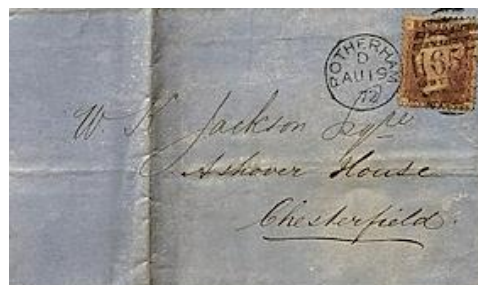 ROTHERHAM
D
AU 19
72
W. K. Jackson Esqre
Ashover House
Chesterfield.